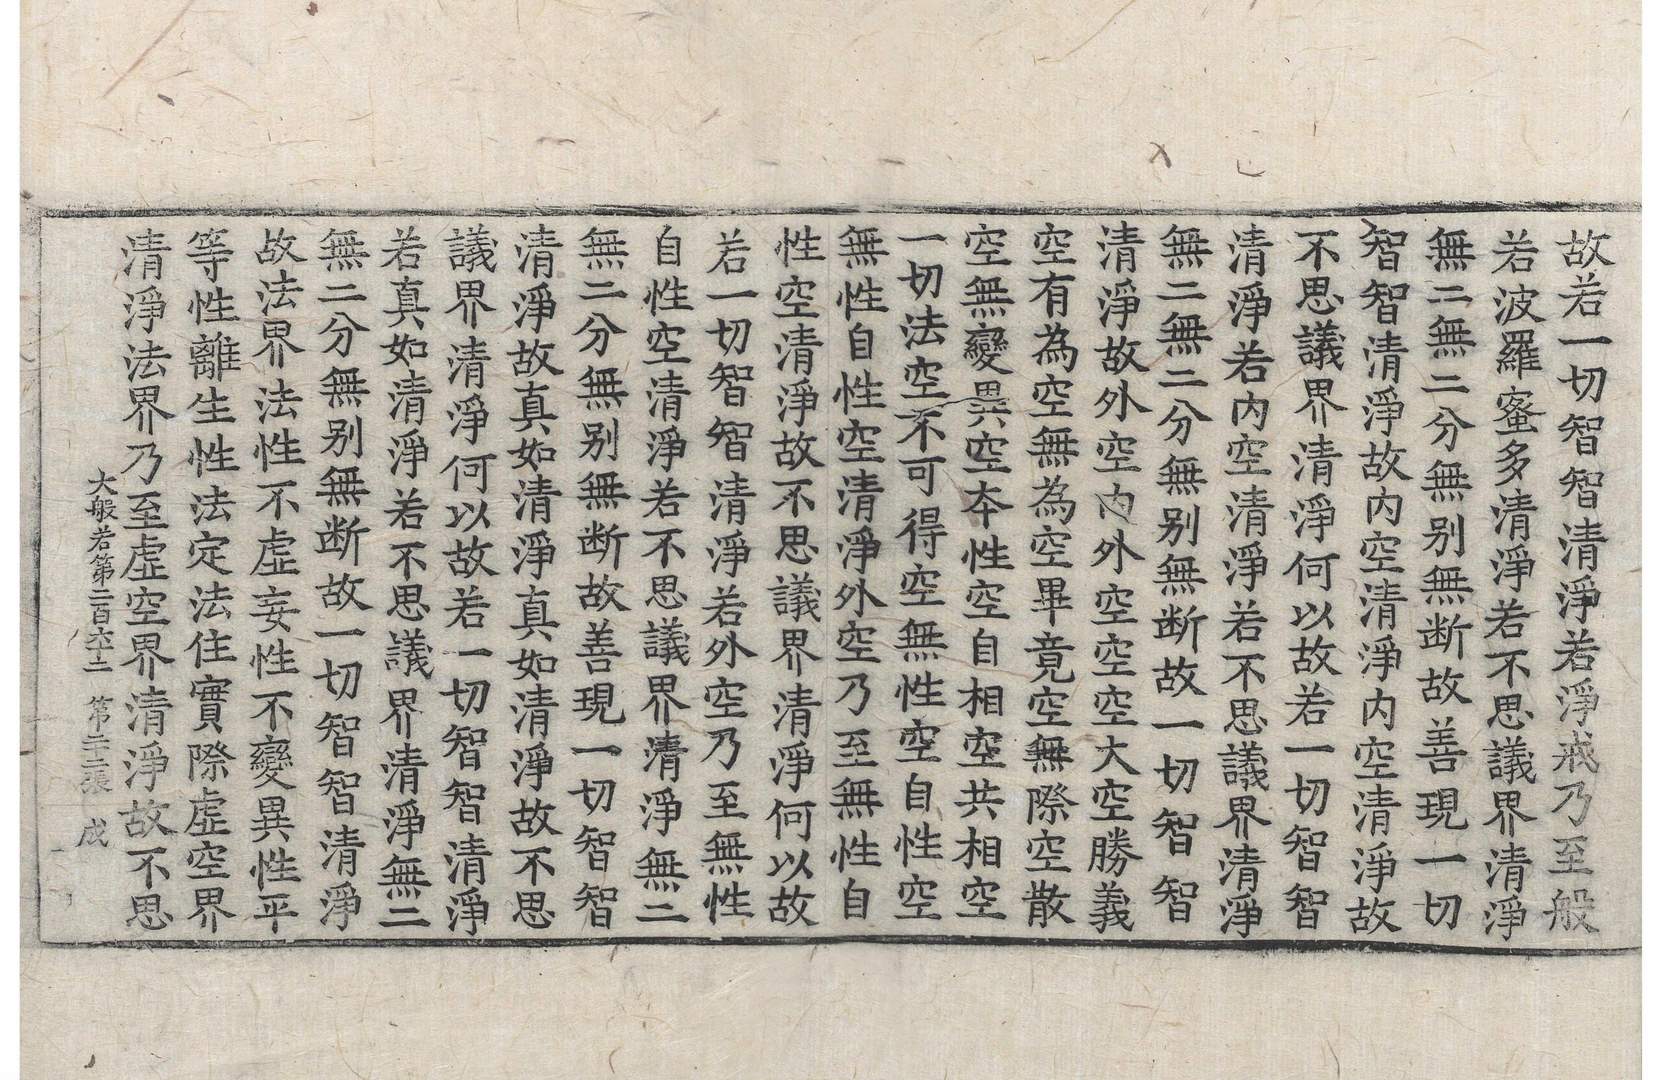 故若一切智智清淨若淨戒乃至般
若波羅蜜多清淨若不思議界清淨
無二無二分無別無断故善現一切
智智清淨故內空清淨內空清淨故
不思議界清淨何以故若一切智智
清淨若內空清淨若不思議界清淨
無二無二分無別無断故一切智智
清淨故外空內外空空空大空勝義
空有為空無為空畢竟空無際空散
空無變異空本性空自相空共相空
一切法空不可得空無性空自性空
無性自性空清淨外空乃至無性自
性空清淨故不思議界清淨何以故
若一切智智清淨若外空乃至無性
自性空清淨若不思議界清淨無二
無二分無別無断故善現一切智智
清淨故真如清淨真如清淨故不思
議界清淨何以故若一切智智清淨
若真如清淨若不思議界清淨無二
無二分無別無断故一切智智清淨
故法界法性不虛妄性不變異性平
等性離生性法定法住實際虛空界
清淨法界乃至虛空界清淨故不思
大般若第二百六十二 第二十二張 成